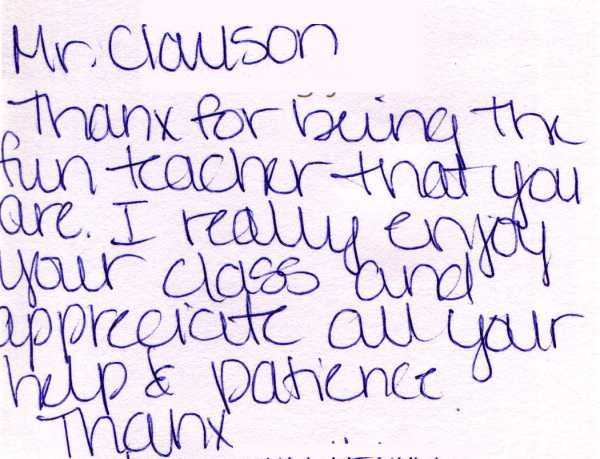 Mr. Clawson
Thanx for being the
fun teacher that you
are. I really enjoy
your class and
appreciate all your
help & patience
Thanx